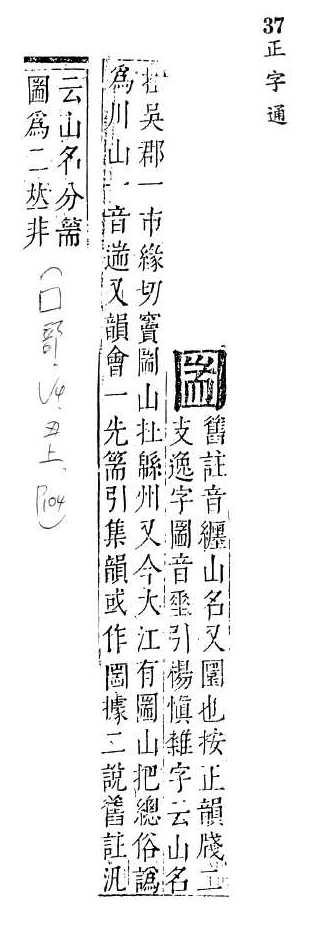 37 正字通
圌
舊註音纏山名又圍也按正韻牋二
支逸字圌音垂引楊慎雜字云山名
在吳郡一市緣切竇圌山在緜州又今大江有圌山把總俗譌
為川山一音遄又韻會一先篅引集韻或作圌據二說舊註汎
云山名分篅
圌為二𠀤非
(口部.V4.丑上.P104)